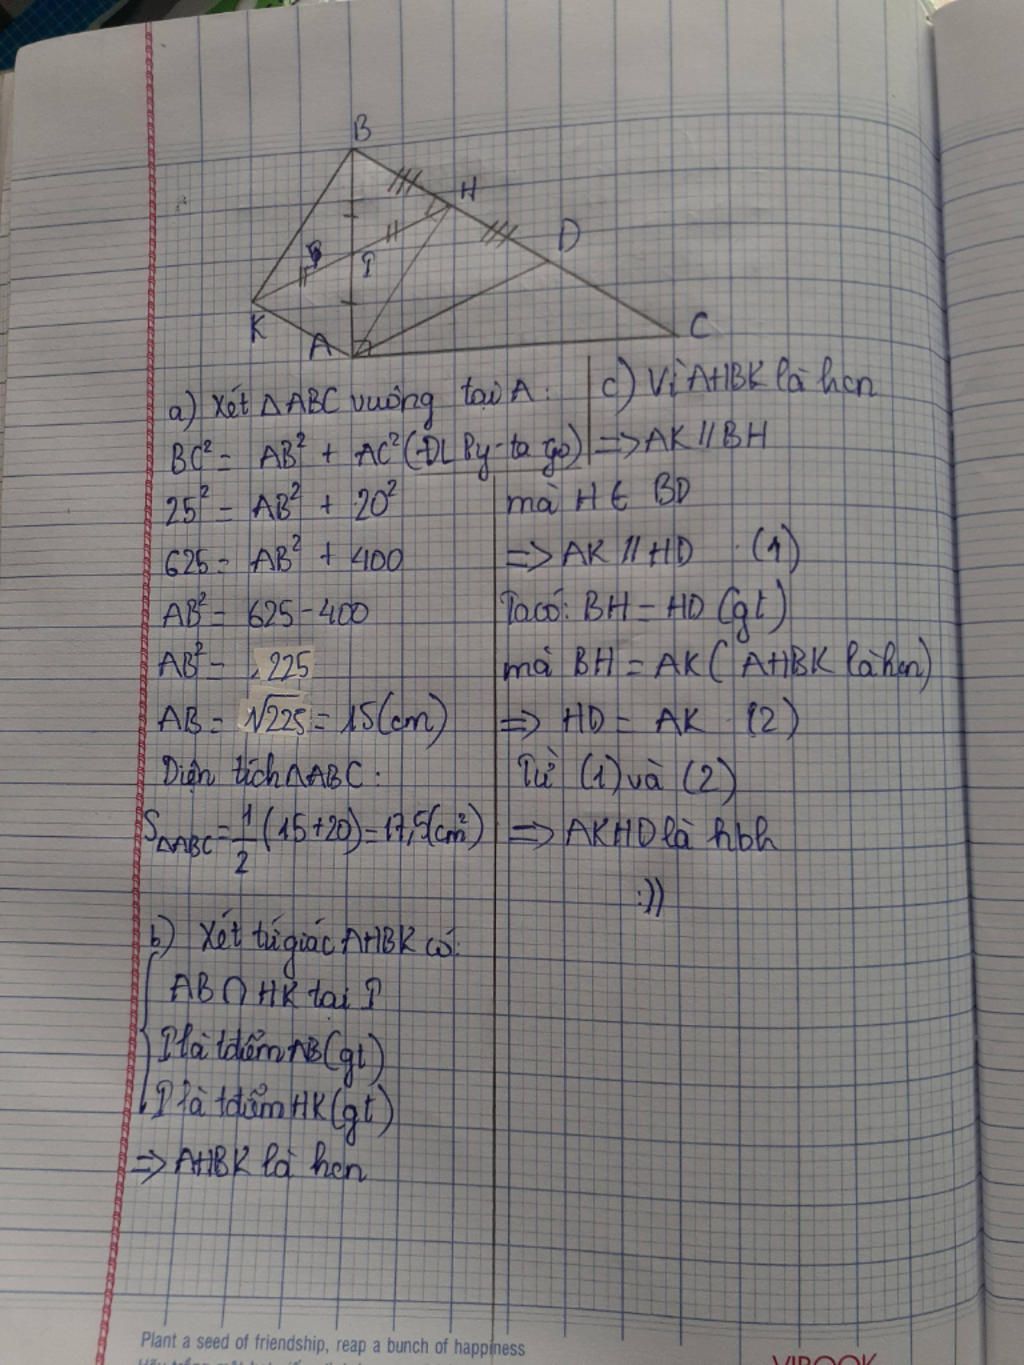 B
H
D
I
K
A
C
a) Xét ΔABC vuông tại A:
BC² = AB² + AC² (ĐL Py-ta go)
25² = AB² + 20²
625 = AB² + 400
AB² = 625 - 400
AB² = 225
AB = √225 = 15(cm)
Diện tích ΔABC:
S△ABC = 1/2 (15+20) = 17,5(cm²)
b) Xét tứ giác AHBK có:
AB ∩ HK tại I
I là tđiểm AB(gt)
I là tđiểm HK(gt)
=> AHBK là hcn
c) Vì AHBK là hcn
=> AK // BH
mà H ∈ BD
=> AK // HD (1)
Ta có: BH = HD (gt)
mà BH = AK ( AHBK là hcn)
=> HD = AK (2)
Từ (1) và (2)
=> AKHD là hbh
:))
Plant a seed of friendship, reap a bunch of happiness
VIBOOK